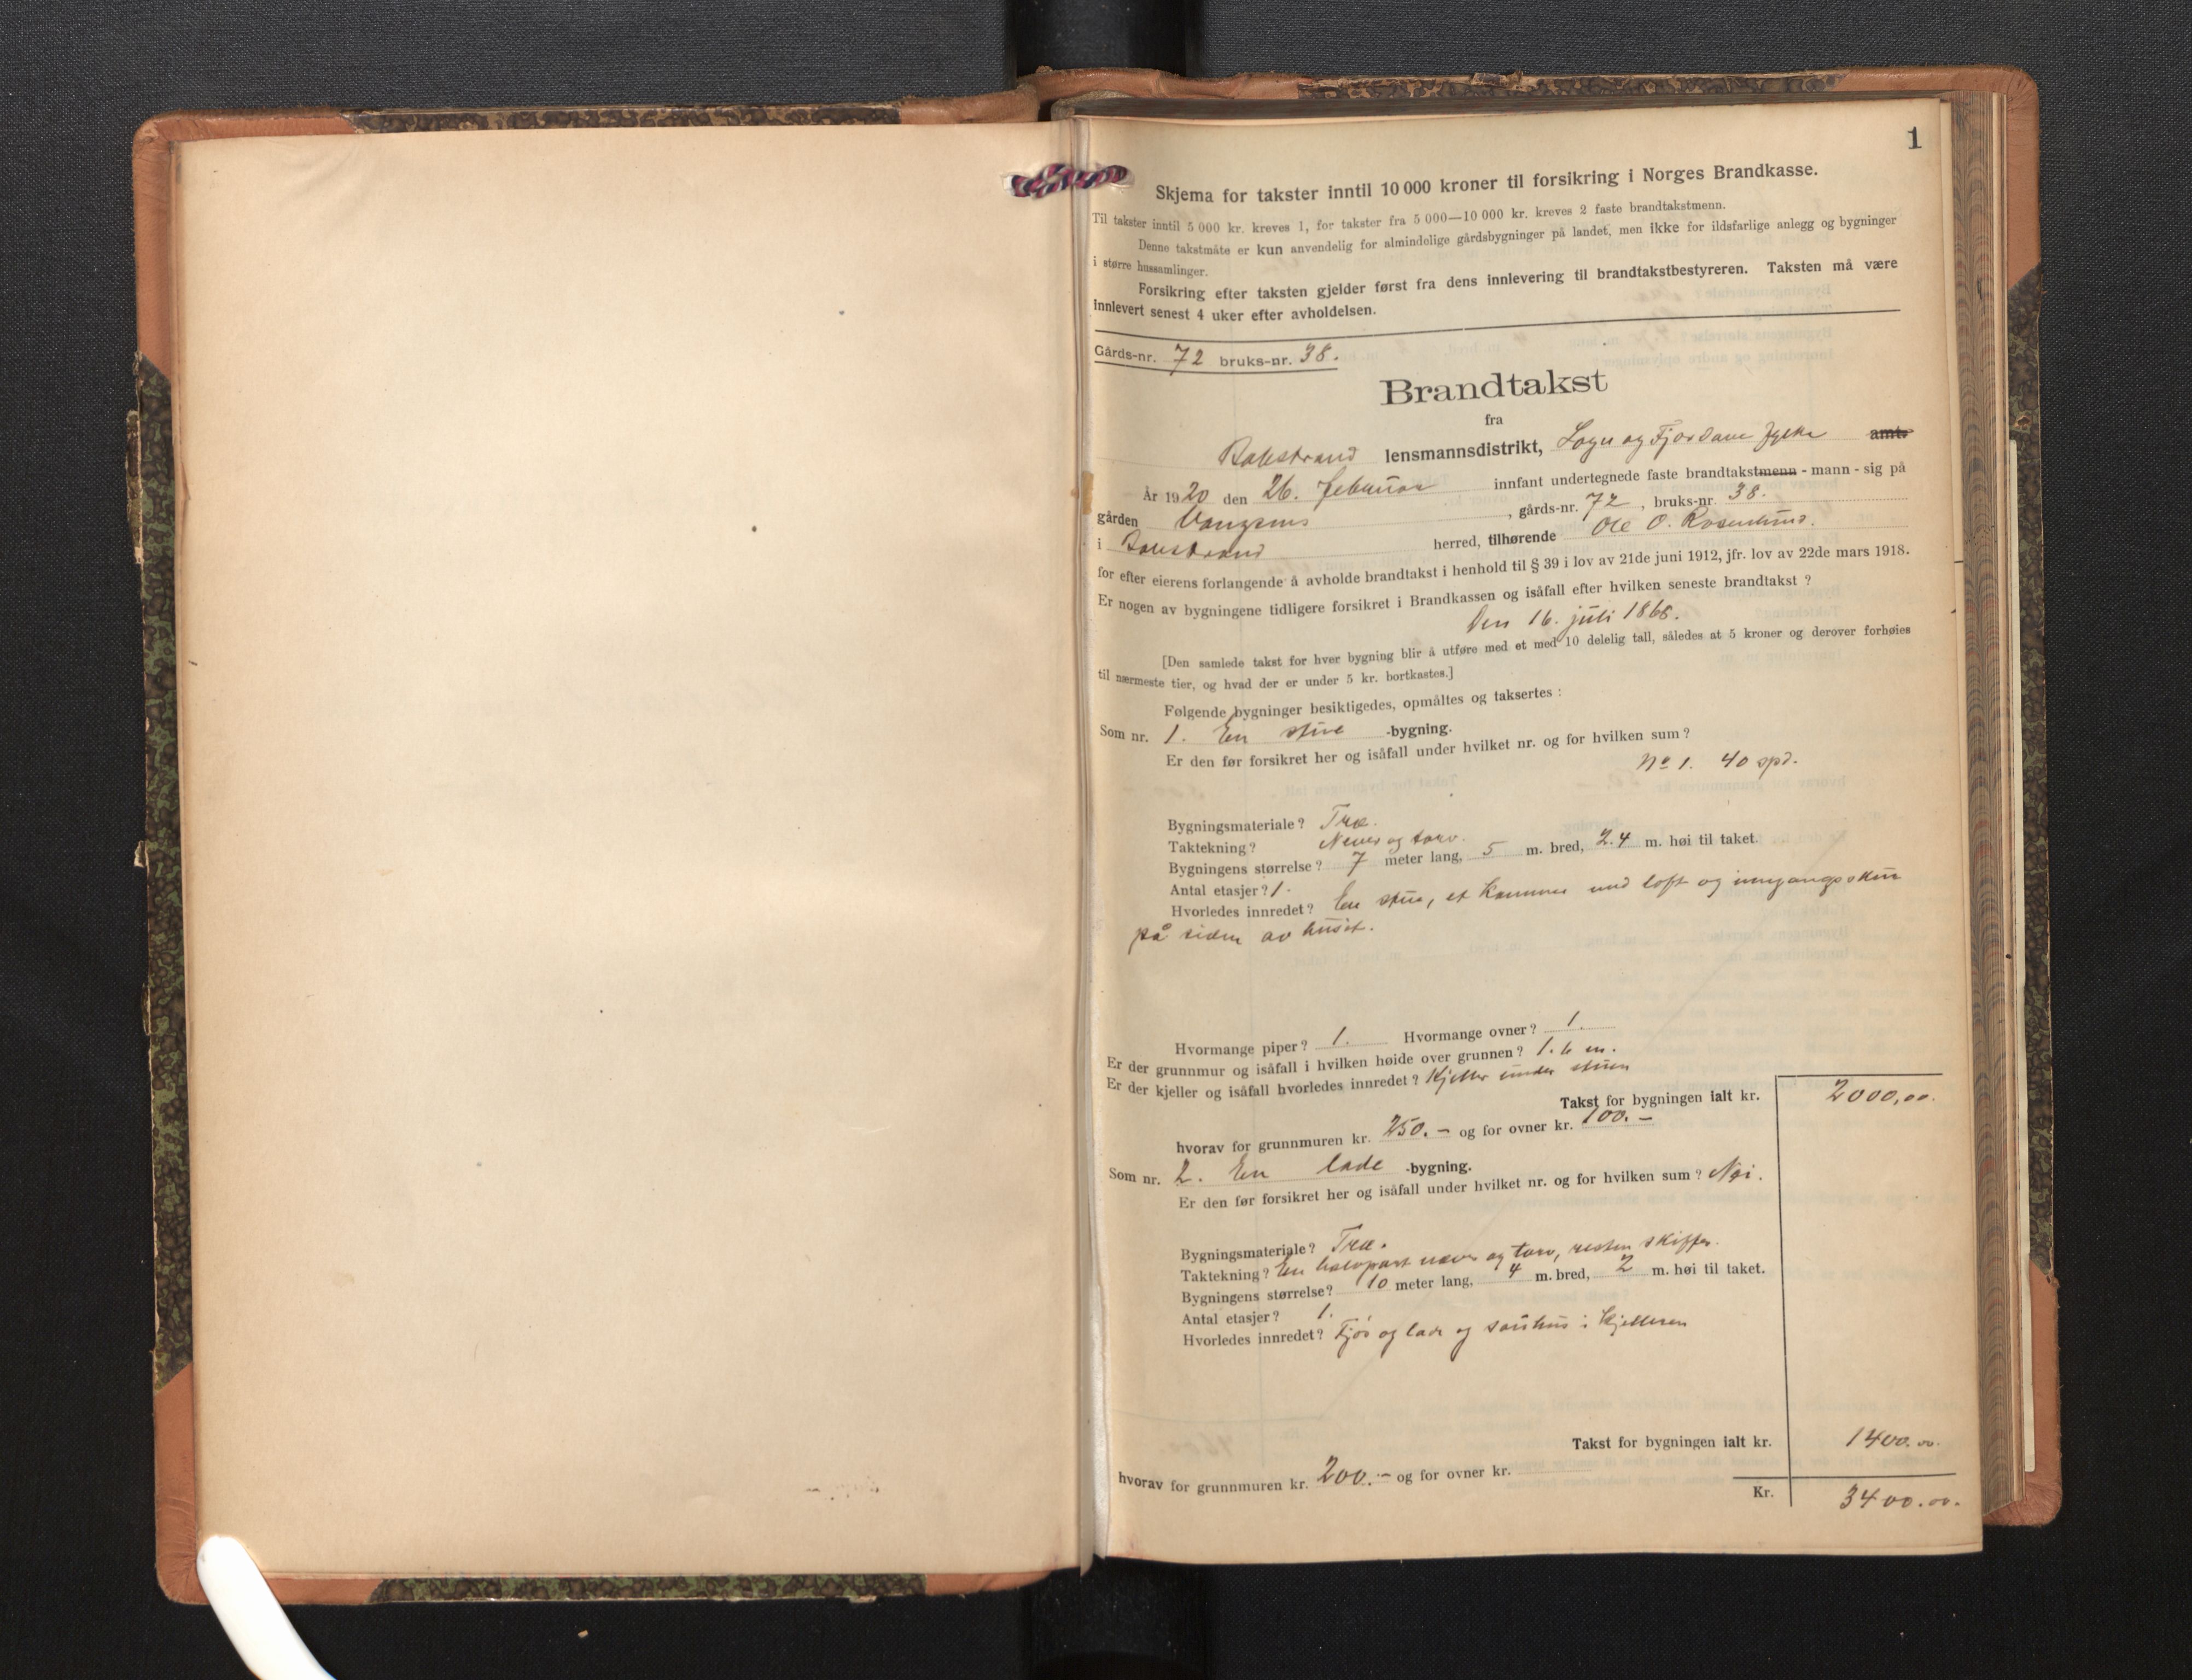 1
Skjema for takster inntil 10 000 kroner til forsikring i Norges Brandkasse.
Til takster inntil 5 000 kr. kreves 1, for takster fra 5 000—10 000 kr. kreves 2 faste brandtakstmenn.
Denne takstmåte er kun anvendelig for almindelige gårdsbygninger på landet, men ikke for ildsfarlige anlegg og bygninger
i større hussamlinger.
Forsikring efter taksten gjelder først fra dens innlevering til brandtakstbestyreren. Taksten må være
innlevert senest 4 uker efter avholdelsen.
Gårds-nr. 72 bruks-nr. 38.
Brandtakst
fra
Balestrand lensmannsdistrikt, Sogn og Fjordane fylke amts
År 1920 den 26. februar innfant undertegnede faste brandtakstmenn - mann - sig på
gården Vangsnes, gårds-nr. 72, bruks-nr. 38.
i Balestrand herred, tilhørende Ole O. Rosenlund.
for efter eierens forlangende å avholde brandtakst i henhold til § 39 i lov av 21de juni 1912, jfr. lov av 22de mars 1918.
Er nogen av bygningene tidligere forsikret i Brandkassen og isåfall efter hvilken seneste brandtakst ?
Den 16. juli 1868.
[Den samlede takst for hver bygning blir å utføre med et med 10 delelig tall, således at 5 kroner og derover forhøies
til nærmeste tier, og hvad der er under 5 kr. bortkastes.]
Følgende bygninger besiktigedes, opmåltes og taksertes :
Som nr. 1. En stue -bygning.
Er den før forsikret her og isåfall under hvilket nr. og for hvilken sum ?
No 1. 40 spd.
Bygningsmateriale? Træ.
Taktekning? Never og torv.
Bygningens størrelse? 7 meter lang, 5 m. bred, 2.4 m. høi til taket.
Antal etasjer? 1.
Hvorledes innredet? En stue, et kammer med loft og inngangsskur
på siden av huset.
Hvormange piper? 1. Hvormange ovner? 1.
Er der grunnmur og isåfall i hvilken høide over grunnen? 1.6 m.
Er der kjeller og isåfall hvorledes innredet? Kjeller under stuen
Takst for bygningen ialt kr. 2000,00.
hvorav for grunnmuren kr. 250.- og for ovner kr. 100.-
Som nr. 2. En lade -bygning.
Er den før forsikret her og isåfall under hvilket nr. og for hvilken sum? Nei.
Bygningsmateriale? Træ.
Taktekning? En halvpart never og torv, resten skiffer.
Bygningens størrelse? 10 meter lang, 4 m. bred, 2 m. høi til taket.
Antal etasjer? 1.
Hvorledes innredet? Fjøs og lade og sauhus i kjelleren
Takst for bygningen ialt kr. 1400.00.
hvorav for grunnmuren kr. 200.- og for ovner kr.
Kr. 3400.00.